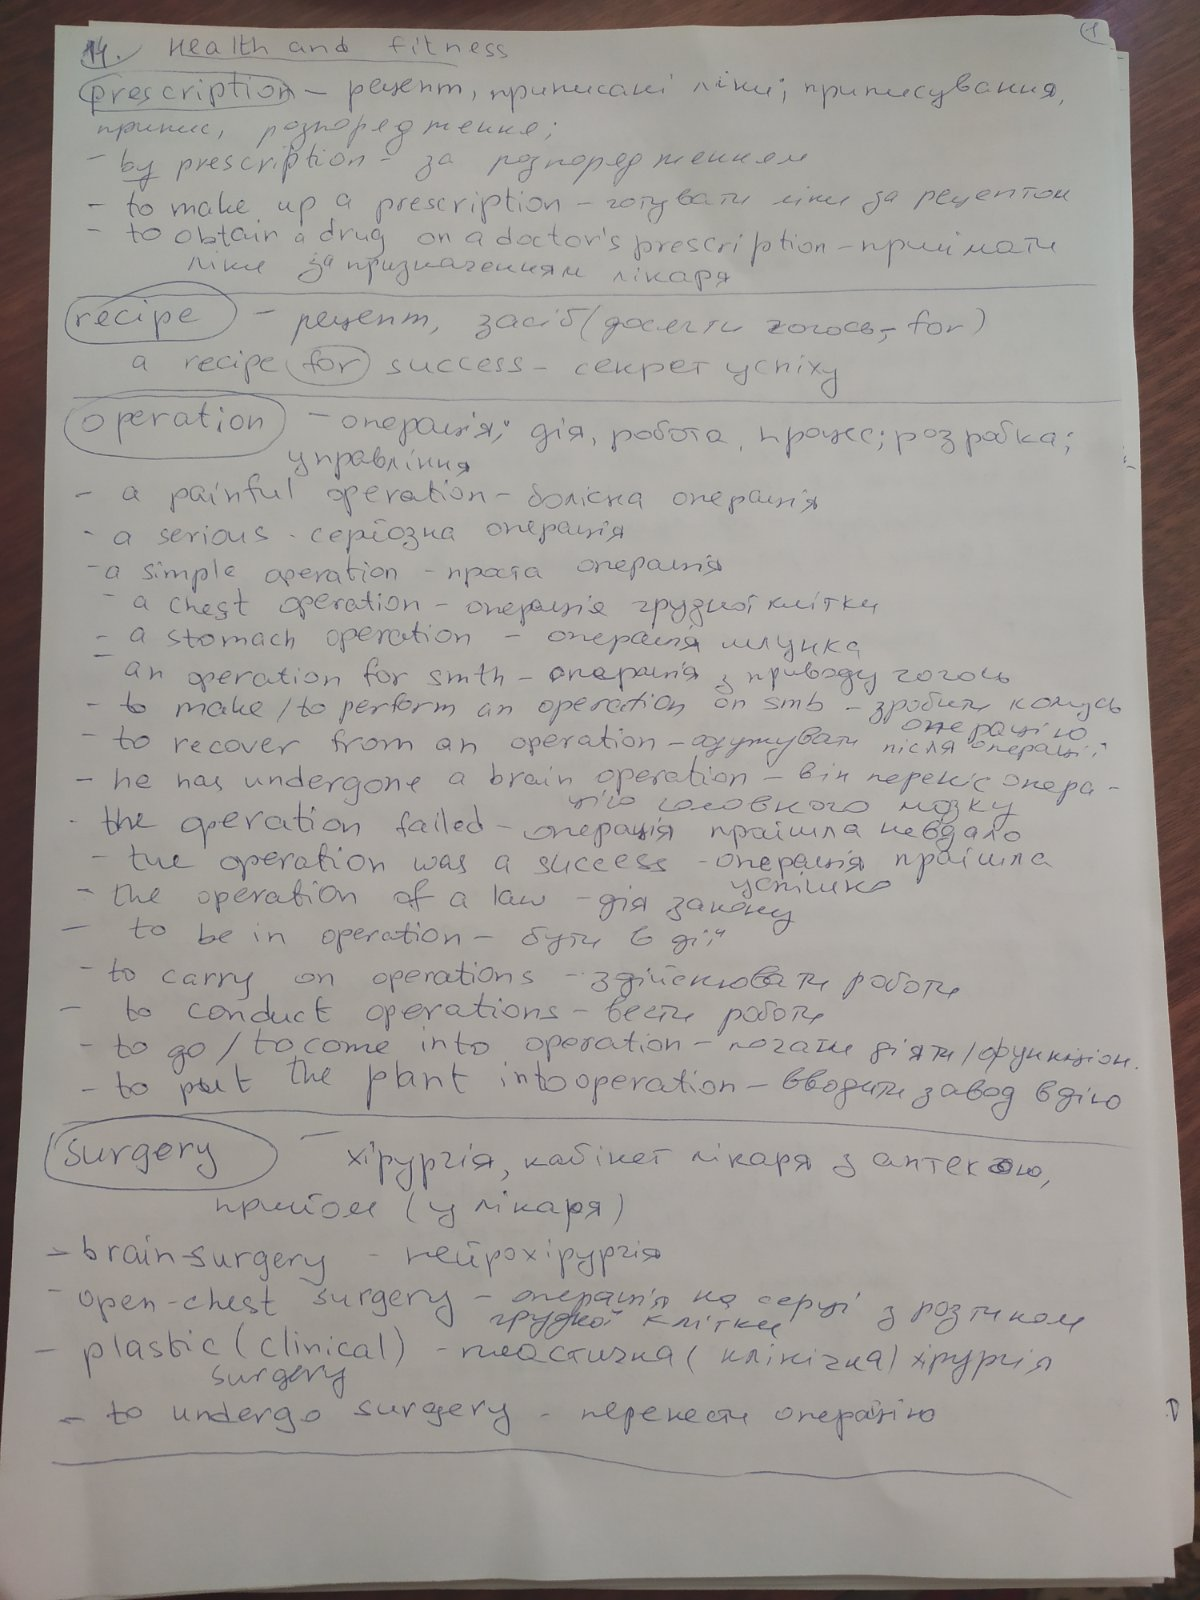 14. Health and fitness
1
prescription – рецепт, приписані ліки; приписування,
припис, розпорядження;
- by prescription - за розпорядженням
- to make up a prescription – готувати ліки за рецептом
- to obtain a drug on a doctor's prescription – приймати
ліки за призначенням лікаря
recipe – рецепт, засіб (досягти чогось, - for)
a recipe for success – секрет успіху
operation – операція; дія, робота, процес; розробка;
управління
- a painful operation – болісна операція
- a serious - серйозна операція
- a simple operation - проста операція
- a chest operation – операція грудної клітки
- a stomach operation – операція шлунка
- an operation for smth – операція з приводу чогось
- to make / to perform an operation on smb – зробити комусь
операцію
- to recover from an operation – одужувати після операції
- he has undergone a brain operation – він переніс опера-
цію головного мозку
- the operation failed – операція праішла невдало
- the operation was a success - операція праішла
успішно
- the operation of a law – дія закону
- to be in operation – бути в дії
- to carry on operations – здійснювати роботи
- to conduct operations – вести роботи
- to go / to come into operation – почати діяти / функціон.
- to put the plant into operation – вводити завод в дію
surgery – хірургія, кабінет лікаря з аптекою,
прийом (у лікаря)
- brain-surgery - нейрохірургія
- open-chest surgery – операція на серці з розтином
грудної клітки
- plastic (clinical) - пластична (клінічна) хірургія
surgery
- to undergo surgery - перенести операцію